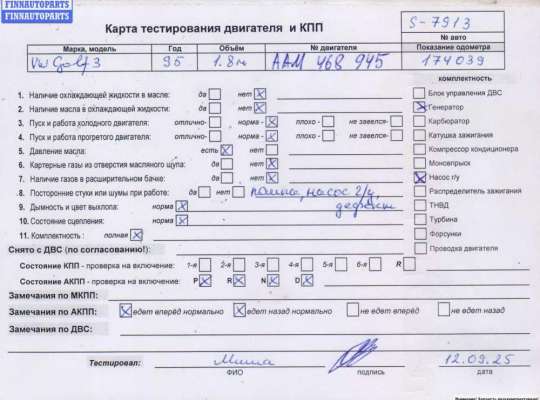 FINNAUTOPARTS
FINNAUTOPARTS
Карта тестирования двигателя и КПП
S-7913
№ авто
Марка, модель Год Объём № двигателя Показание одометра
VW Golf 3 95 1.8м AAM 468 945 174039
комплектность
1. Наличие охлаждающей жидкости в масле: да нет
Блок управления ДВС
2. Наличие масла в охлаждающей жидкости: да нет
Генератор
3. Пуск и работа холодного двигателя: отлично- норма - плохо - не завелся-
Карбюратор
4. Пуск и работа прогретого двигателя: отлично- норма - плохо - не завелся-
Катушка зажигания
5. Давление масла: есть нет
Компрессор кондиционера
6. Картерные газы из отверстия масляного щупа: да нет
Моновпрыск
7. Наличие газов в расширительном бачке: да нет
Насос г/у
8. Посторонние стуки или шумы при работе: да нет помпа, насос г/у,
Распределитель зажигания
9. Дымность и цвет выхлопа: норма
ТНВД
10. Состояние сцепления: норма
Турбина
11. Комплектность : полная
Форсунки
Снято с ДВС (по согласованию!):
Проводка двигателя
Состояние КПП - проверка на включение: 1-я 2-я 3-я 4-я 5-я 6-я R
Состояние АКПП - проверка на включение: P R N D
Замечания по МКПП:
Замечания по АКПП: едет вперёд нормально едет назад нормально не едет вперёд не едет назад
Замечания по ДВС:
Тестировал: Миша 12.09.25
ФИО подпись дата